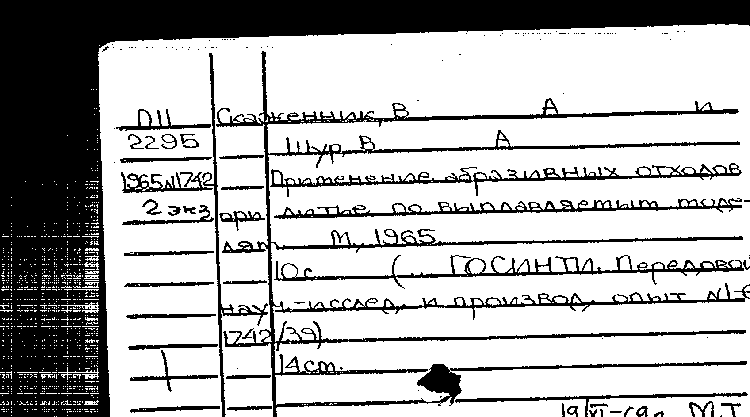 ПП Скаженник, В А и
2295 Шур, В А
1965 №1742 Применение абразивных отходов
2 экз при литье по выплавляемым моде-
лям. М., 1965.
10 с. (... ГОСИНТИ. Передовой
науч.-исслед. и производ. опыт №1-6
1742/39)
14 ст.
М.Т.